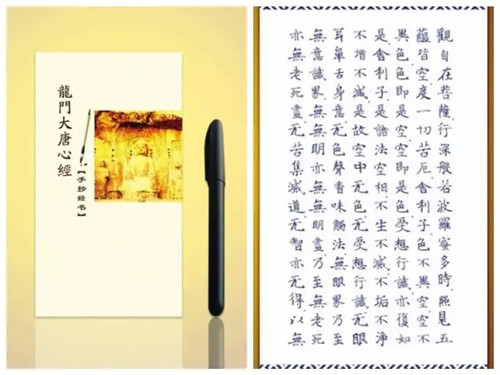 龍門大唐心經
【手抄经书】
觀自在菩薩行深般若波羅蜜多時照見五
蘊皆空度一切苦厄舍利子色不異空空不
異色色即是空空即是色受想行識亦復如
是舍利子是諸法空相不生不滅不垢不淨
不增不減是故空中无色无受想行識无眼
耳鼻舌身意无色聲香味觸法無眼界乃至
無意識界無無明亦無無明盡乃至無老死
亦無老死盡无苦集滅道无智亦无得以無